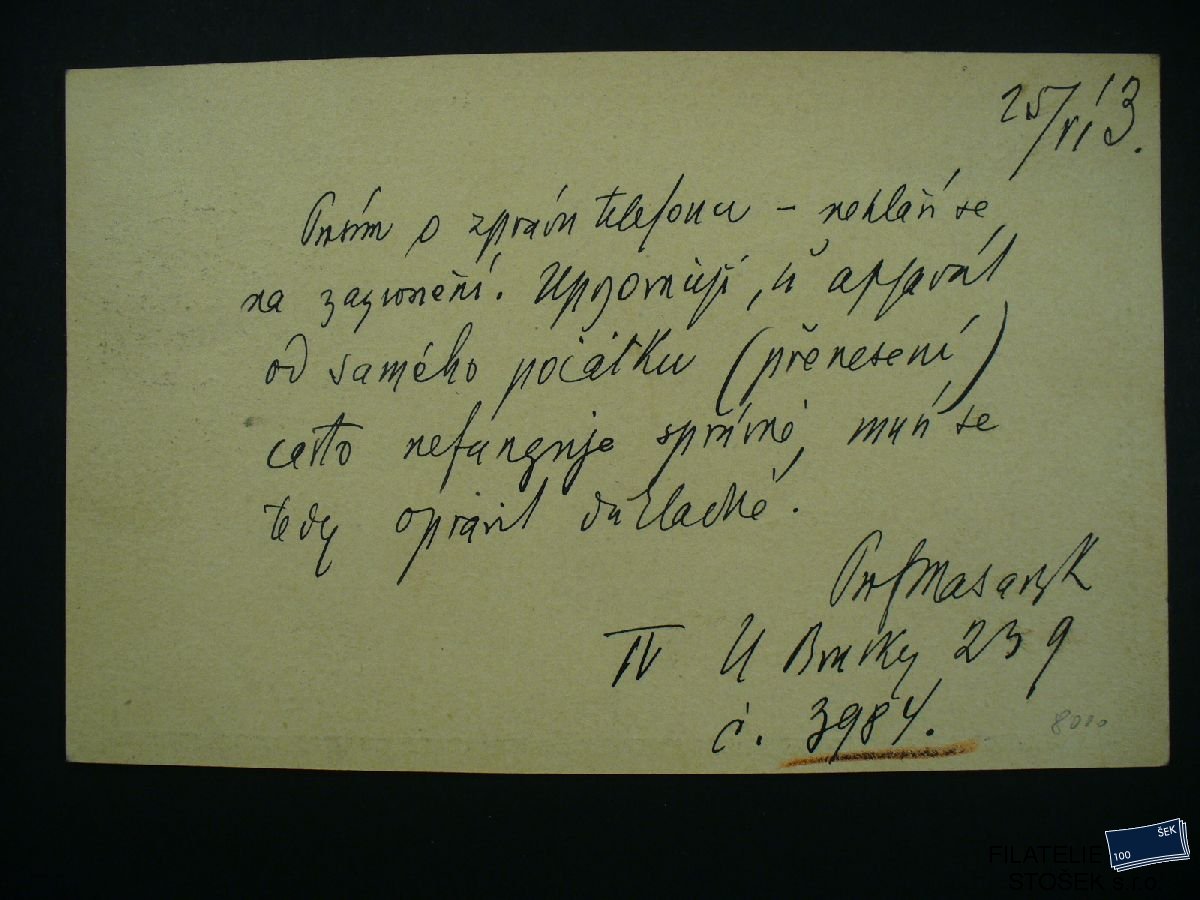 25/VI 13.
Prosím o správu telefonu – nehlásí se
na zazvonění. Upozorňuji, že aparát
od samého počátku (přenesení)
často nefunguje správně, musí se
tedy opravit důkladně.
Prof Masaryk
IV U Brusky 239
č. 3984.
8000
100 ŠEK
FILATELIE
STOSEK s.r.o.